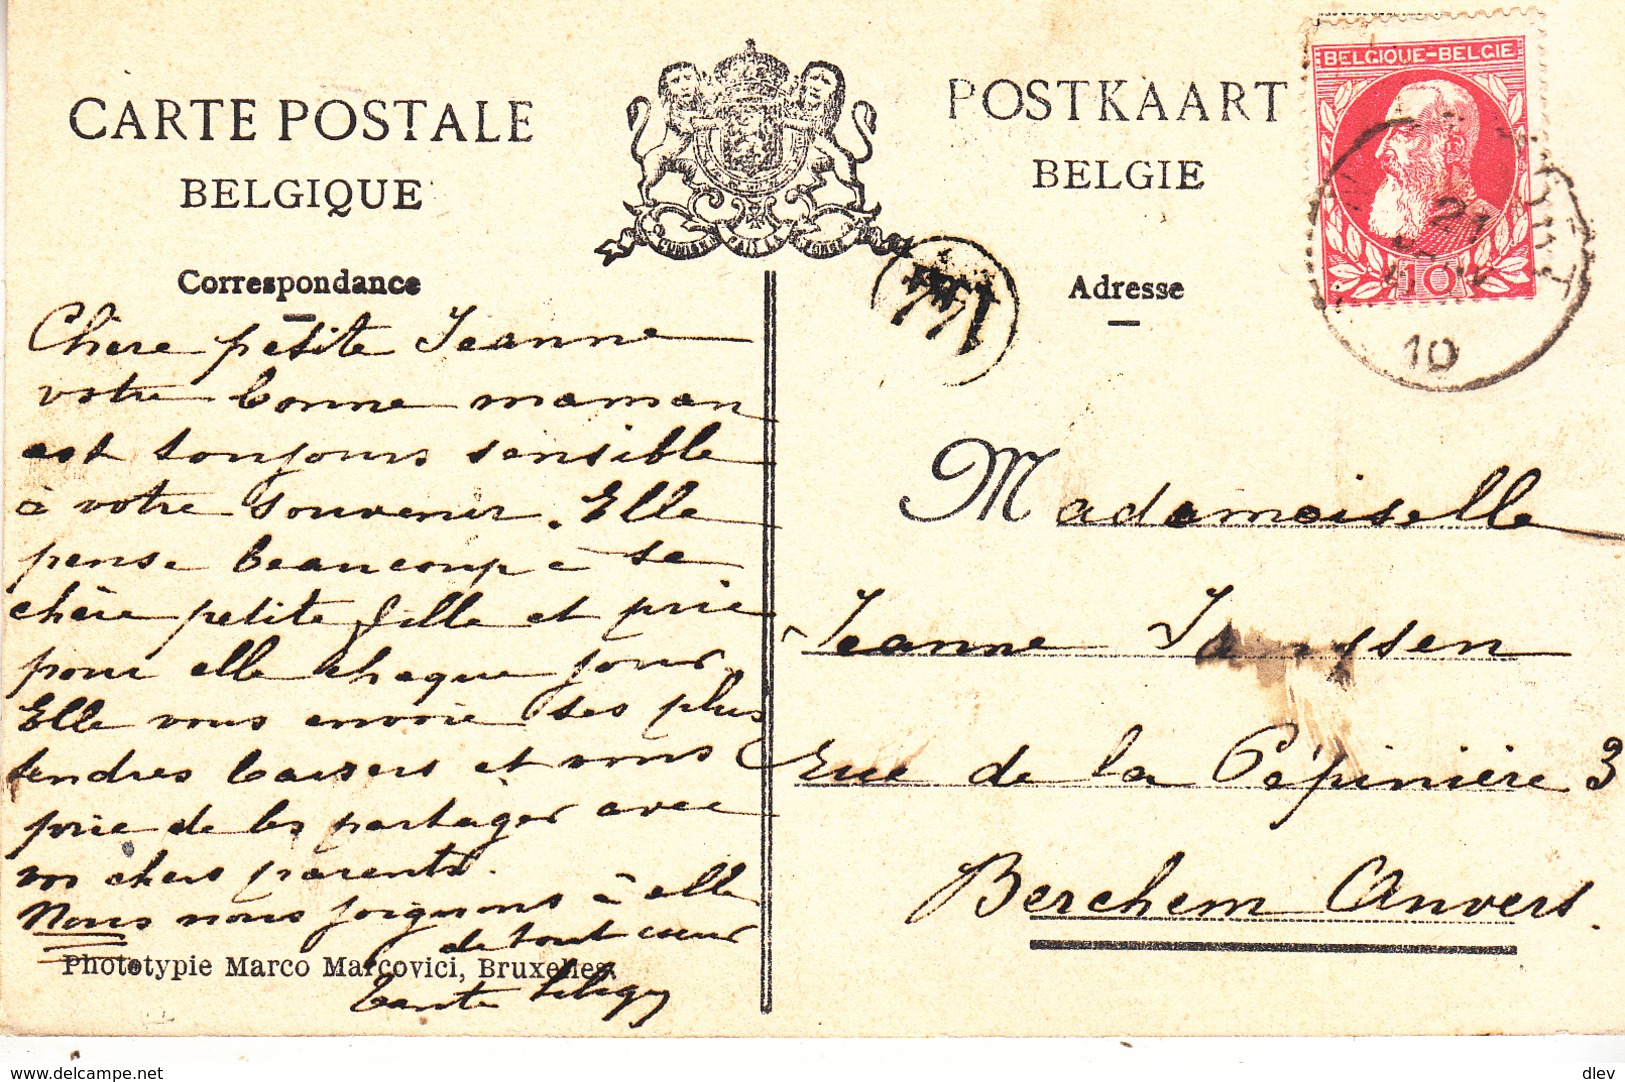 CARTE POSTALE
BELGIQUE
POSTKAART
BELGIE
BELGIQUE-BELGIE
10
21
10
Correspondance
Adresse
Chère petite Jeanne
votre bonne maman
est toujours sensible
à votre souvenir. Elle
pense beaucoup à sa
chère petite fille et prie
pour elle chaque jour.
Elle vous envoie ses plus
tendres baisers et vous
prie de les partager avec
vos chers parents.
Nous nous joignons à elle
de tout cœur
Tante
Phototypie Marco Marcovici, Bruxelles.
Mademoiselle
Jeanne Janssen
Rue de la Pépinière 3
Berchem Anvers.
https://www.delcampe.net
dlev